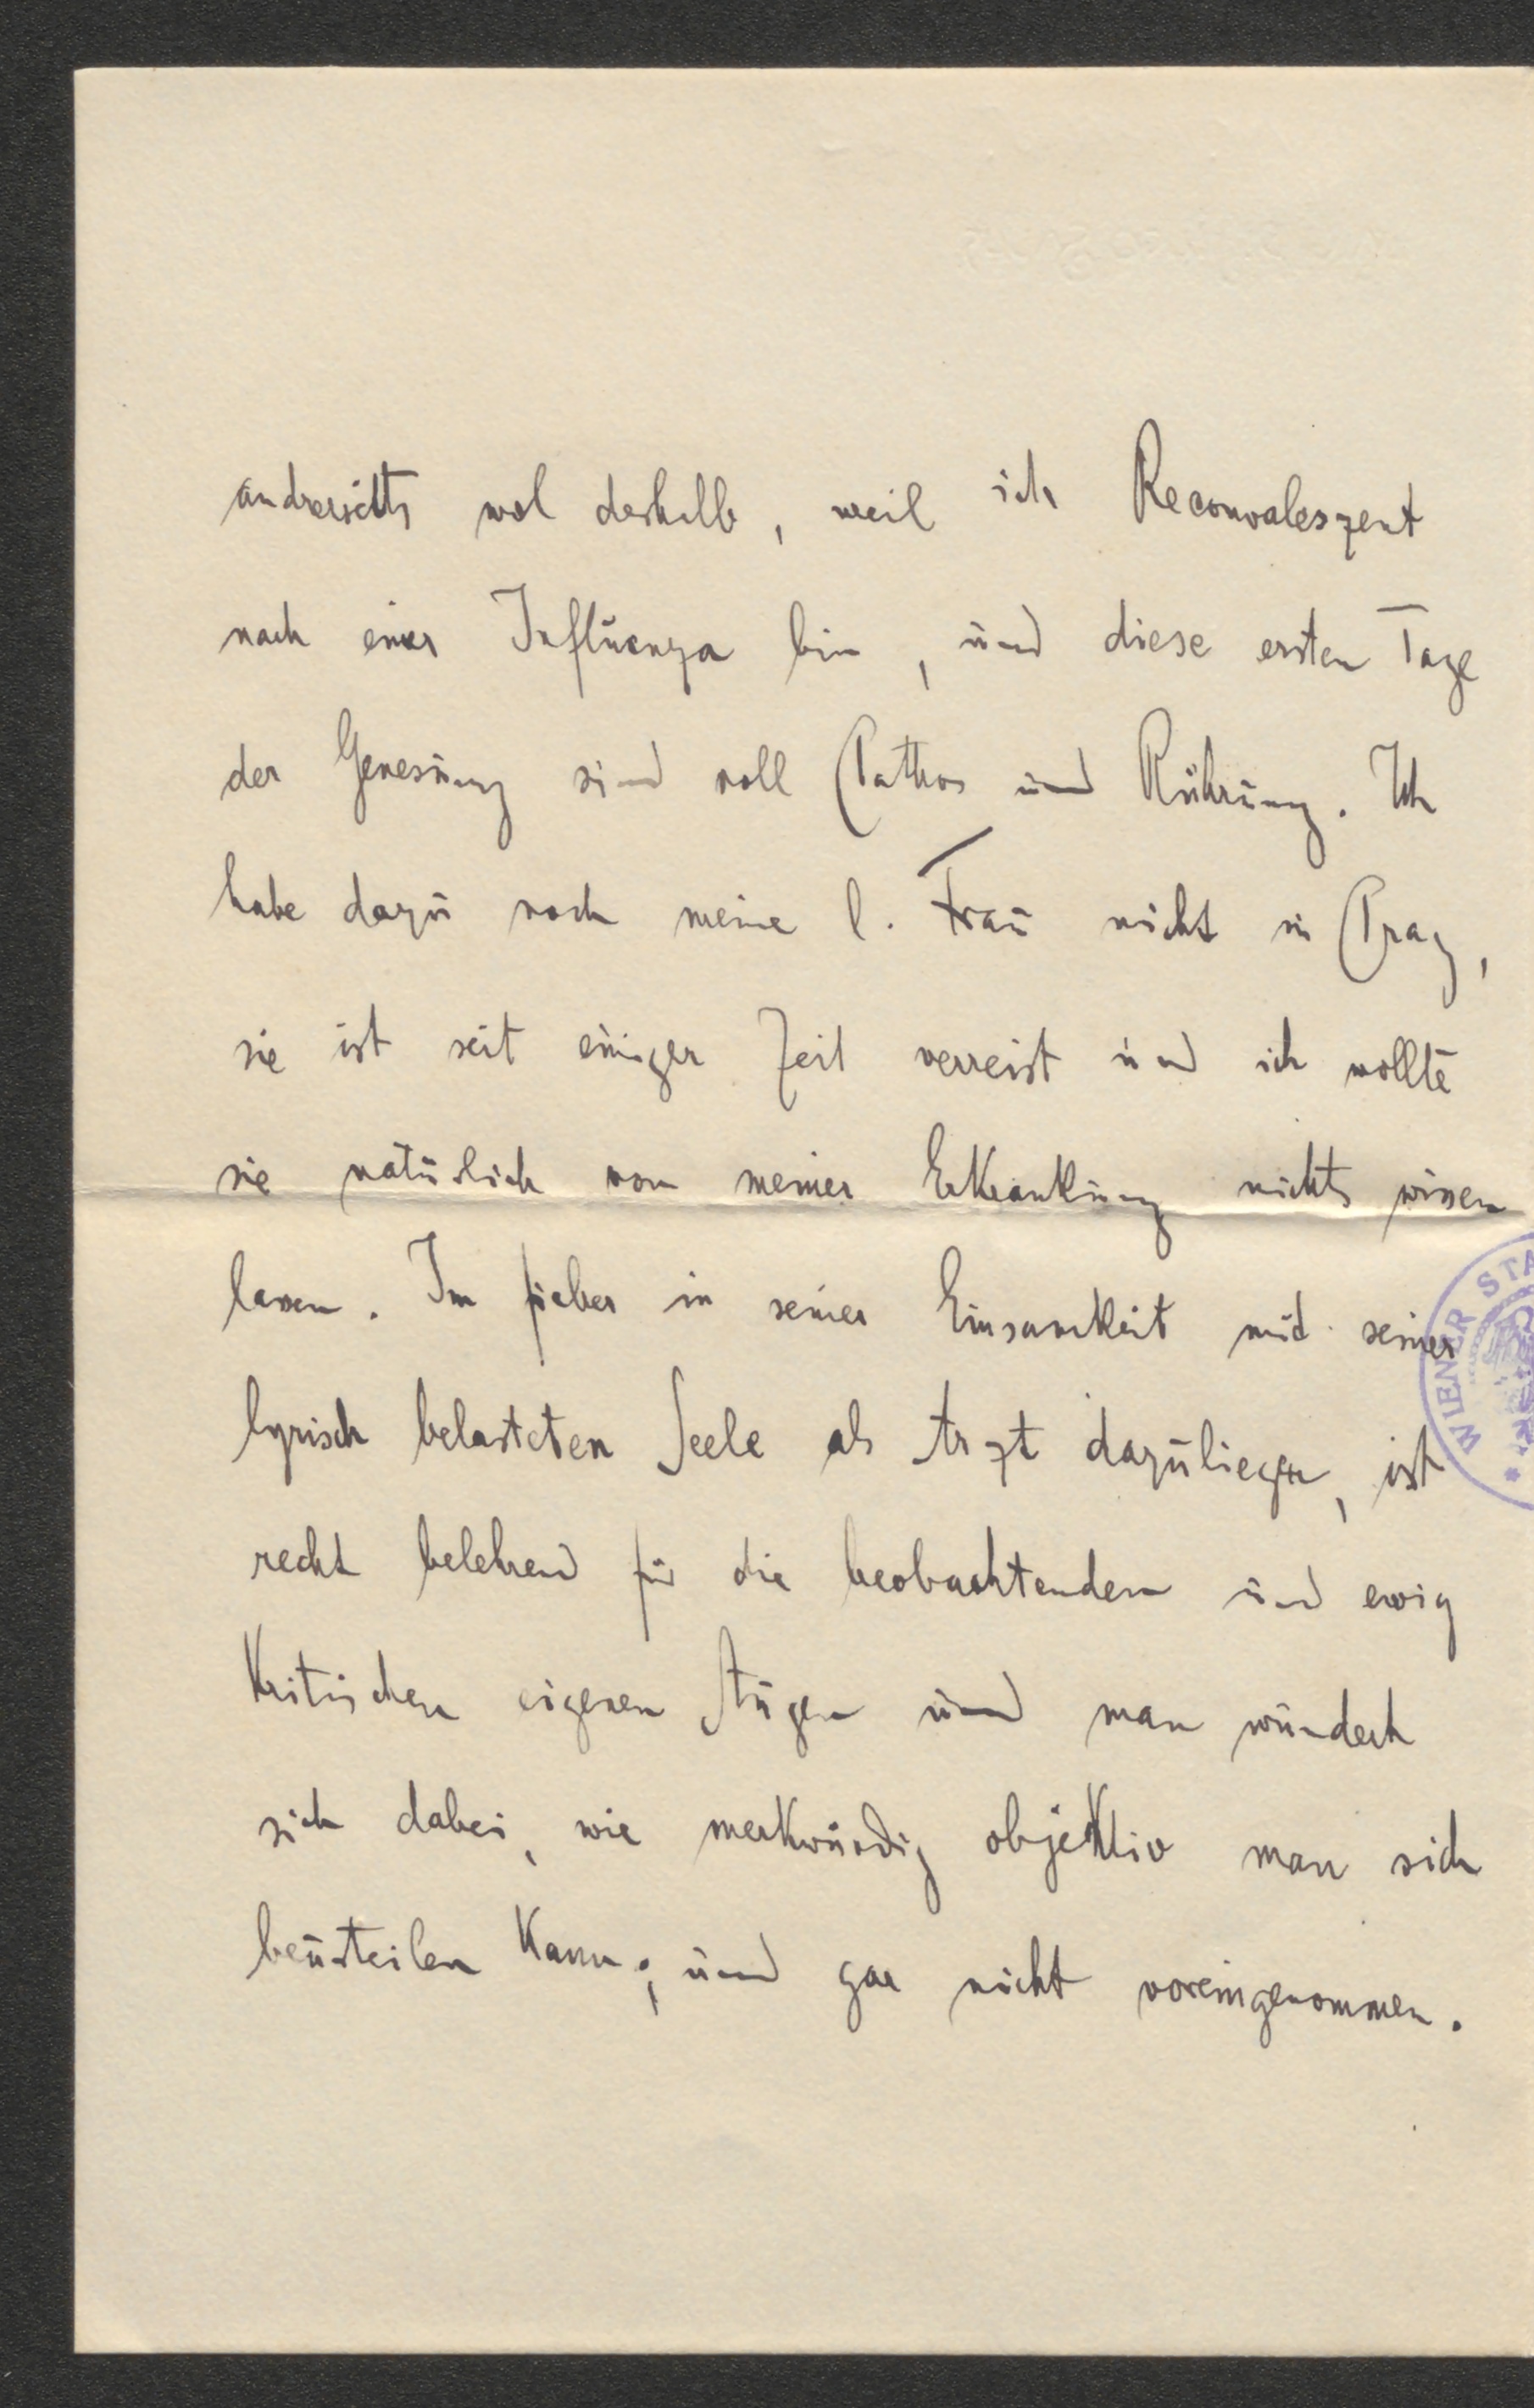 andrerseits wol deshalb, weil ich Reconvaleszent
nach einer Influenza bin, und diese ersten Tage
der Genesung sind voll Pathos und Rührung. Ich
habe dazu noch meine l. Frau nicht in Prag,
sie ist seit einiger Zeit verreist und ich wollte
sie natürlich von meiner Erkrankung nichts wissen
lassen. Im Fieber in seiner Einsamkeit mit seiner
WIENER STA
lyrisch belasteten Seele als Arzt dazuliegen, ist
recht belehrend für die beobachtenden und ewig
kritischen eigenen Augen und man wundert
sich dabei, wie merkwürdig objektiv man sich
beurteilen kann; und gar nicht voreingenommen.